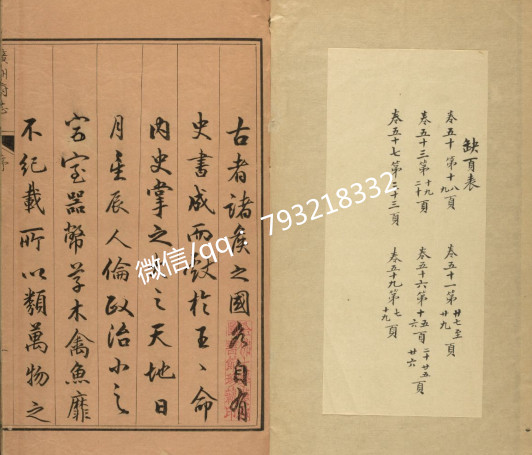 缺頁表
卷五十第十八十九頁
卷五十一第廿七至廿九頁
卷五十三第十九二十頁
卷五十六第十五十六二十廿五廿六頁
卷五十七第三十三頁
卷五十九第七十九頁
古者諸矦之國各自有
史書成而獻於王、命
内史掌之之天地日
月星辰人倫政治小之
宮室器幣草木禽魚靡
不紀載所以類萬物之
廣州府志
序
微信/qq：793218332